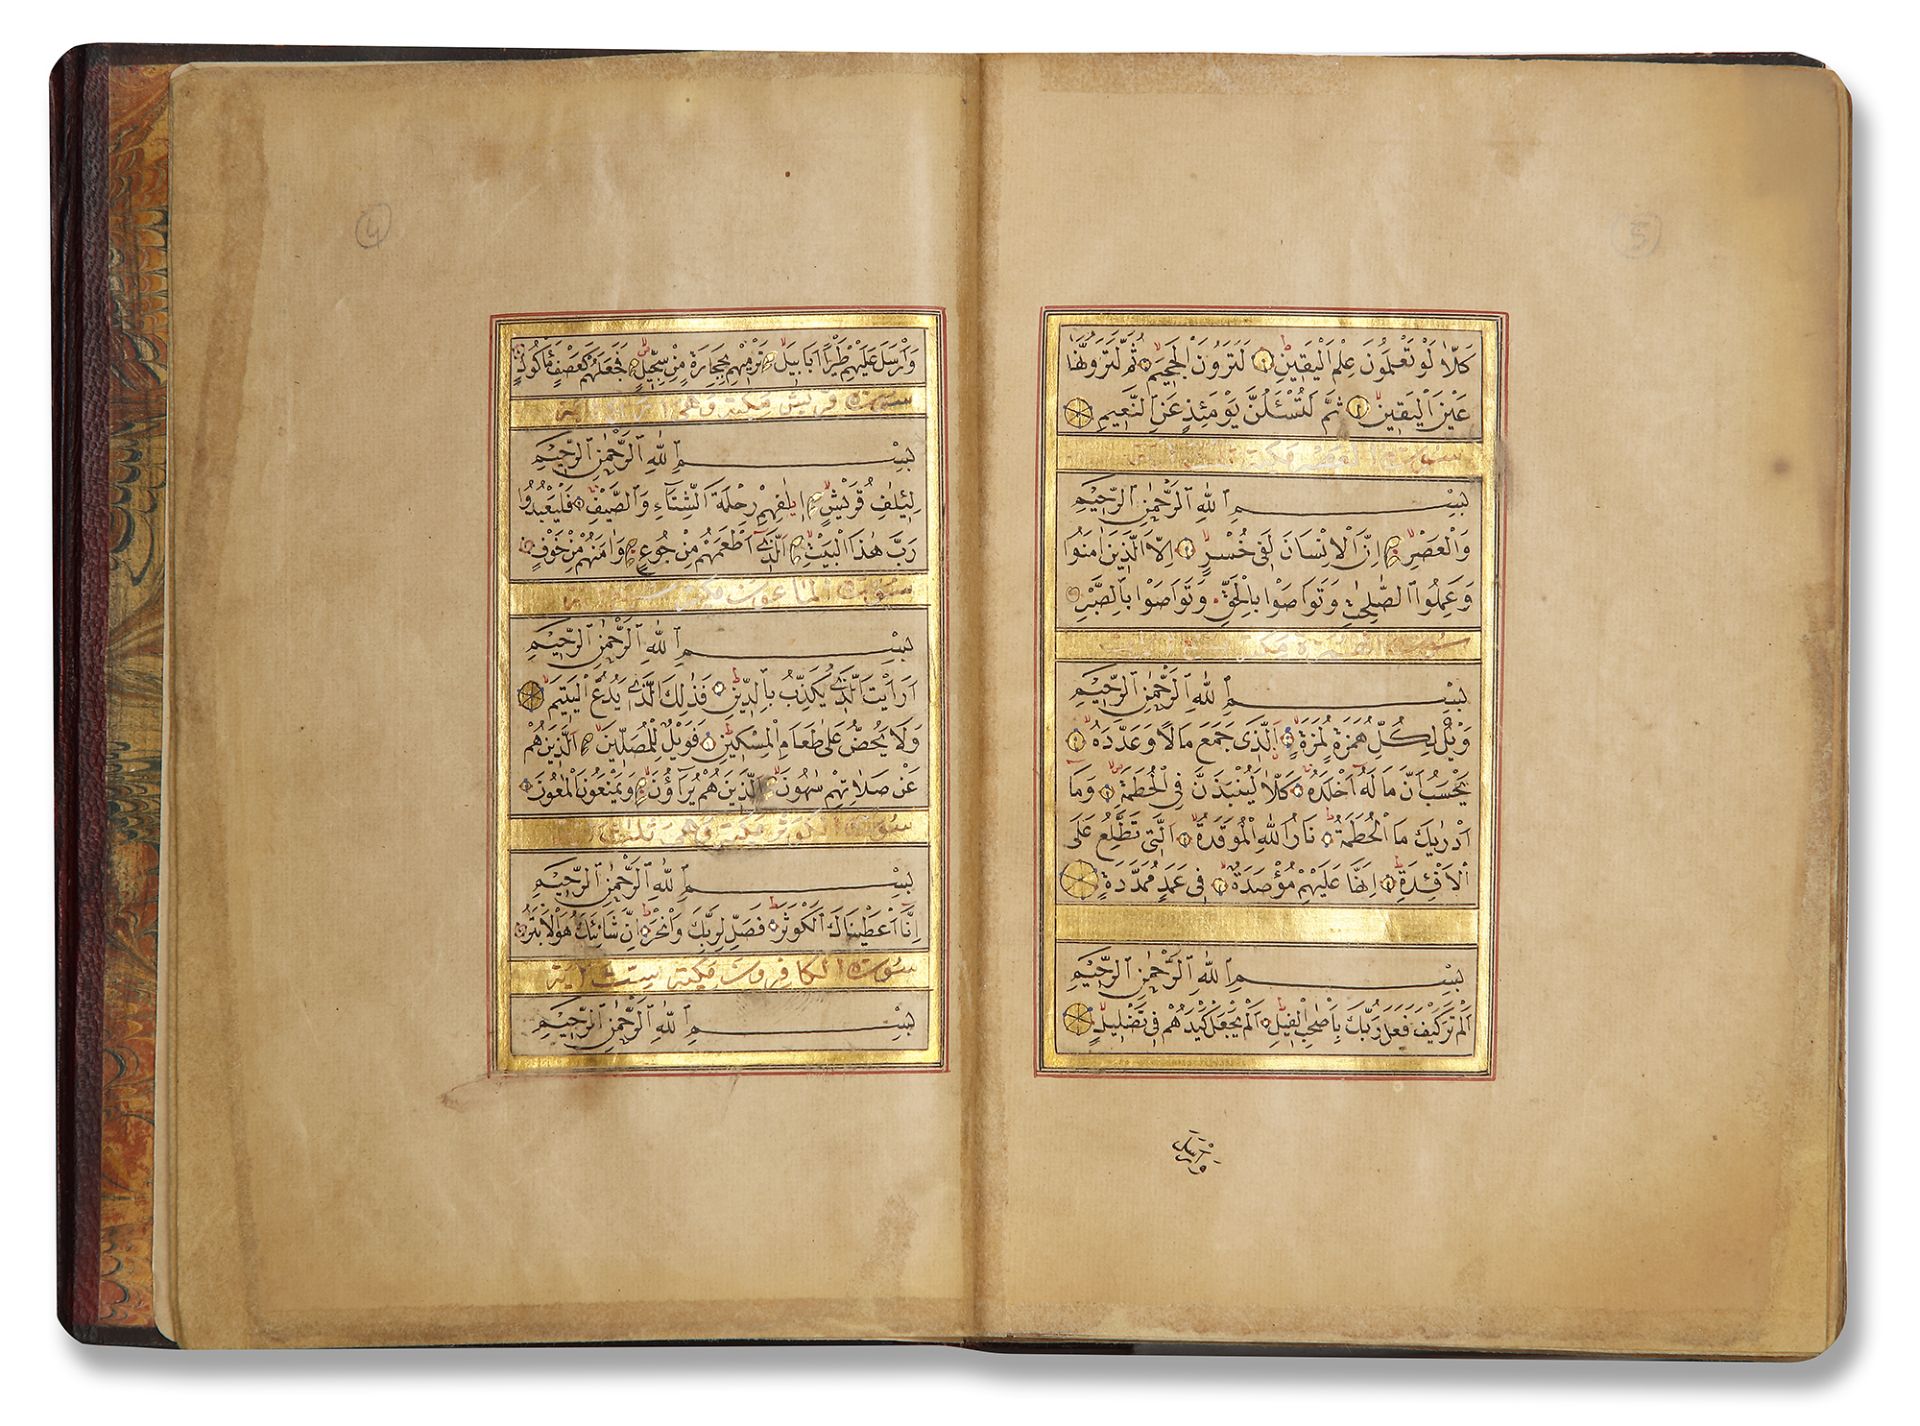 5
كَلَّا لَوْ تَعْلَمُونَ عِلْمَ الْيَقِينِ لَتَرَوُنَّ الْجَحِيمَ ثُمَّ لَتَرَوُنَّهَا
عَيْنَ الْيَقِينِ ثُمَّ لَتُسْئَلُنَّ يَوْمَئِذٍ عَنِ النَّعِيمِ
سورة العصر مكية
بِسْمِ اللّٰهِ الرَّحْمٰنِ الرَّحِيمِ
وَالْعَصْرِ اِنَّ الْاِنْسَانَ لَفِي خُسْرٍ اِلَّا الَّذِينَ اٰمَنُوا
وَعَمِلُوا الصَّالِحَاتِ وَتَوَاصَوْا بِالْحَقِّ وَتَوَاصَوْا بِالصَّبْرِ
سورة الهمزة مكية
بِسْمِ اللّٰهِ الرَّحْمٰنِ الرَّحِيمِ
وَيْلٌ لِكُلِّ هُمَزَةٍ لُمَزَةٍ الَّذِى جَمَعَ مَالًا وَعَدَّدَهُ
يَحْسَبُ اَنَّ مَالَهُ اَخْلَدَهُ كَلَّا لَيُنْبَذَنَّ فِي الْحُطَمَةِ وَمَا
اَدْرٰيكَ مَا الْحُطَمَةُ نَارُ اللّٰهِ الْمُوقَدَةُ الَّتِي تَطَّلِعُ عَلَى
الْاَفْئِدَةِ اِنَّهَا عَلَيْهِمْ مُؤْصَدَةٌ فِي عَمَدٍ مُمَدَّدَةٍ
بِسْمِ اللّٰهِ الرَّحْمٰنِ الرَّحِيمِ
اَلَمْ تَرَ كَيْفَ فَعَلَ رَبُّكَ بِاَصْحَابِ الْفِيلِ اَلَمْ يَجْعَلْ كَيْدَهُمْ فِي تَضْلِيلٍ
وَاَرْسَلَ
4
وَاَرْسَلَ عَلَيْهِمْ طَيْرًا اَبَابِيلَ تَرْمِيهِمْ بِحِجَارَةٍ مِنْ سِجِّيلٍ فَجَعَلَهُمْ كَعَصْفٍ مَأْكُولٍ
سورة قريش مكية وهى
بِسْمِ اللّٰهِ الرَّحْمٰنِ الرَّحِيمِ
لِاِيلَافِ قُرَيْشٍ اِيلَافِهِمْ رِحْلَةَ الشِّتَاءِ وَالصَّيْفِ فَلْيَعْبُدُوا
رَبَّ هٰذَا الْبَيْتِ الَّذِى اَطْعَمَهُمْ مِنْ جُوعٍ وَاٰمَنَهُمْ مِنْ خَوْفٍ
سورة الماعون مكية
بِسْمِ اللّٰهِ الرَّحْمٰنِ الرَّحِيمِ
اَرَاَيْتَ الَّذِى يُكَذِّبُ بِالدِّينِ فَذٰلِكَ الَّذِى يَدُعُّ الْيَتِيمَ
وَلَا يَحُضُّ عَلَى طَعَامِ الْمِسْكِينِ فَوَيْلٌ لِلْمُصَلِّينَ الَّذِينَ هُمْ
عَنْ صَلَاتِهِمْ سَاهُونَ الَّذِينَ هُمْ يُرَاؤُنَ وَيَمْنَعُونَ الْمَاعُونَ
سورة الكوثر مكية وهى ثلاث
بِسْمِ اللّٰهِ الرَّحْمٰنِ الرَّحِيمِ
اِنَّا اَعْطَيْنَاكَ الْكَوْثَرَ فَصَلِّ لِرَبِّكَ وَانْحَرْ اِنَّ شَانِئَكَ هُوَ الْاَبْتَرُ
سورة الكافرون مكية ست اية
بِسْمِ اللّٰهِ الرَّحْمٰنِ الرَّحِيمِ